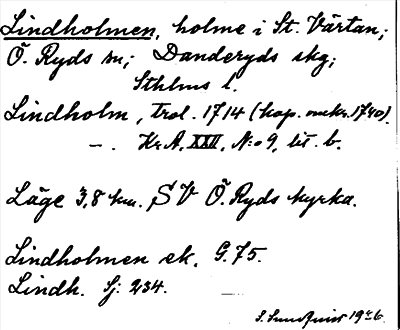 Lindholmen, holme i St. Värtan;
Ö. Ryds sn; Danderyds skg;
Sthlms l.
Lindholm, trol. 1714 (kop. omkr. 1740).
—. Kr.A. XXII, N:o 9, lit. b.
Läge 3,8 km. SV Ö. Ryds kyrka.
Lindholmen ek. G. 75.
Lindh. Sj: 234.
S. Sundquist 1926.